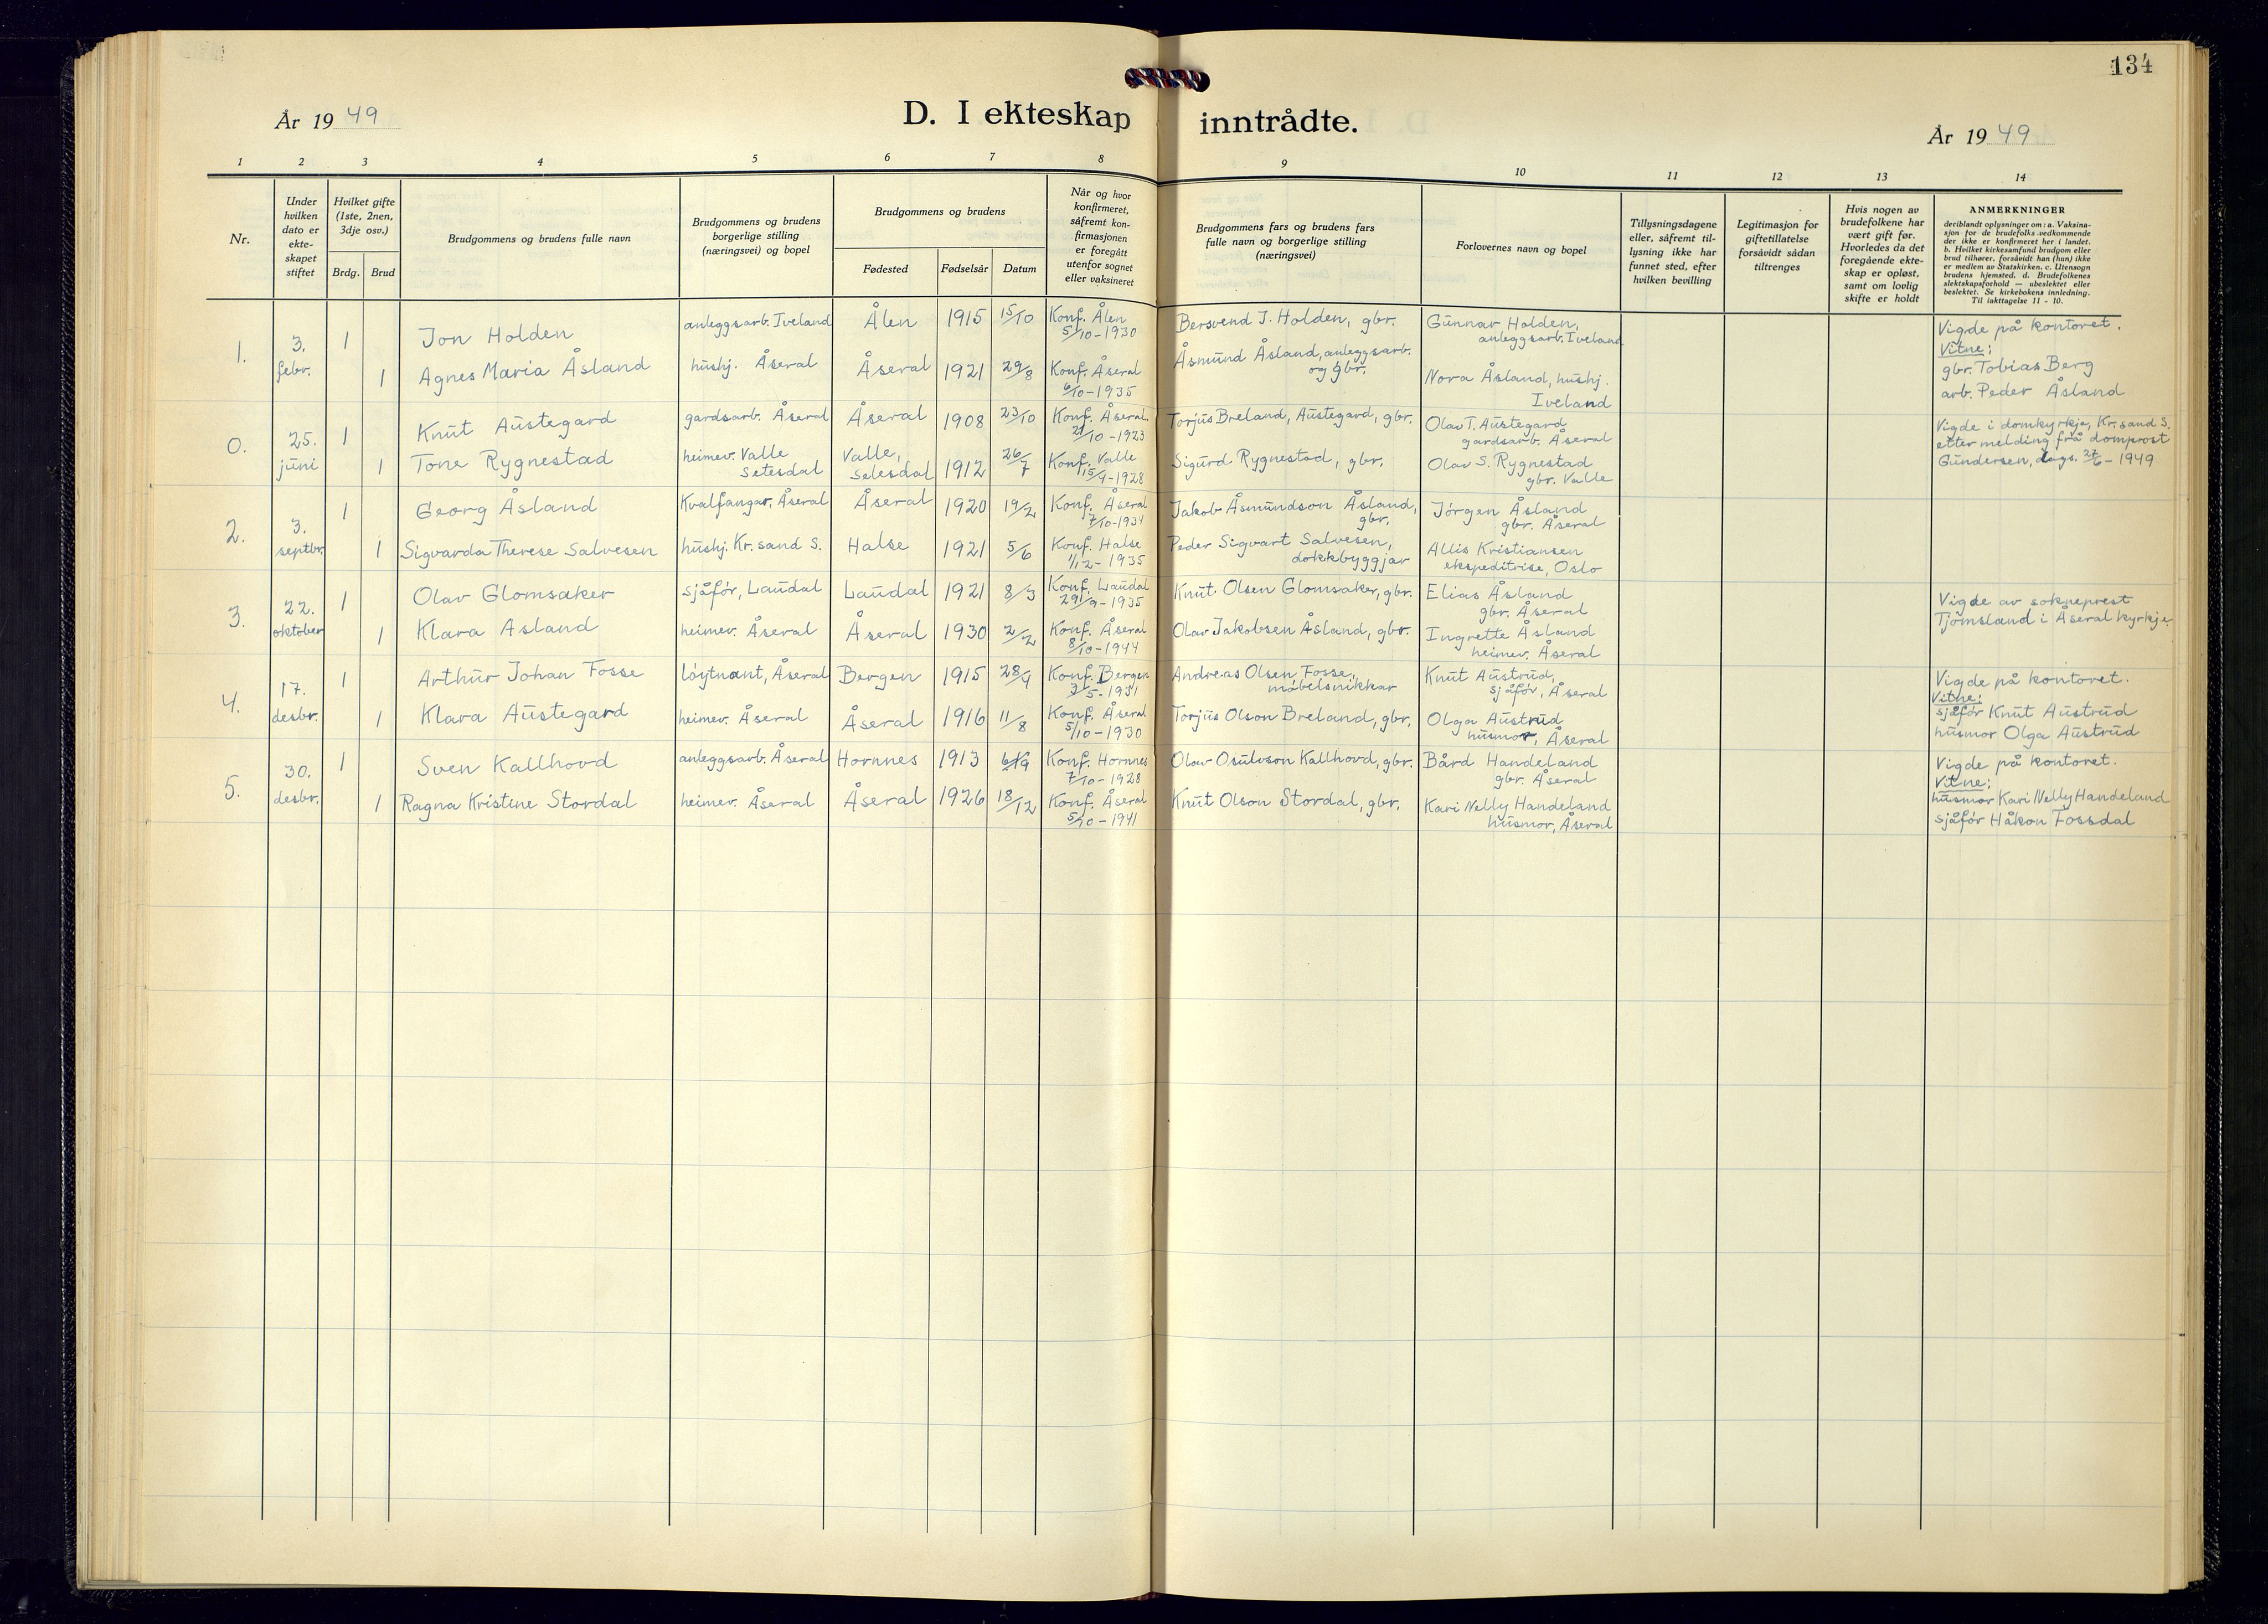 134
År 1949
D. I ekteskap inntrådte.
År 1949
1 2 3 4 5 6 7 8 9 10 11 12 13 14
Nr.
Under
hvilken
dato er
ekte-
skapet
stiftet
Hvilket gifte
(1ste, 2nen,
3dje osv.)
Brdg. Brud
Brudgommens og brudens fulle navn
Brudgommens og brudens
borgerlige stilling
(næringsvei) og bopel
Brudgommens og brudens
Fødested Fødselsår Datum
Når og hvor
konfirmeret,
såfremt kon-
firmasjonen
er foregått
utenfor sognet
eller vaksineret
Brudgommens fars og brudens fars
fulle navn og borgerlige stilling
(næringsvei)
Forlovernes navn og bopel
Tillysningsdagene
eller, såfremt til-
lysning ikke har
funnet sted, efter
hvilken bevilling
Legitimasjon for
giftetillatelse
forsåvidt sådan
tiltrenges
Hvis nogen av
brudefolkene har
vært gift før.
Hvorledes da det
foregående ekte-
skap er opløst,
samt om lovlig
skifte er holdt
ANMERKNINGER
deriblandt oplysninger om: a. Vaksina-
sjon for de brudefolks vedkommende
der ikke er konfirmeret her i landet.
b. Hvilket kirkesamfund brudgom eller
brud tilhører, forsåvidt han (hun) ikke
er medlem av Statskirken. c. Utensogn
brudens hjemsted. d. Brudefolkenes
slektskapsforhold — ubeslektet eller
beslektet. Se kirkebokens innledning.
Til iakttagelse 11 - 10.
1.
3.
febr.
1
Jon Holden
anleggsarb. Iveland
Ålen
1915
15/10
Konf. Ålen
5/10-1930
Bersvend J. Holden, gbr.
Gunnar Holden,
anleggsarb. Iveland
1
Agnes Maria Åsland
hushj. Åseral
Åseral
1921
29/8
Konf. Åseral
6/10-1935
Åsmund Åsland, anleggsarb.
og gbr.
Nora Åsland, hushj.
Iveland
Vigde på kontoret.
Vitne:
gbr. Tobias Berg
arb. Peder Åsland
0.
25.
juni
1
Knut Austegard
gardsarb. Åseral
Åseral
1908
23/10
Konf. Åseral
21/10-1923
Torjus Breland, Austegard, gbr.
Olav T. Austegard
gardsarb. Åseral
1
Tone Rygnestad
heimev. Valle
Setesdal
Valle,
Setesdal
1912
26/7
Konf. Valle
15/9-1928
Sigurd Rygnestad, gbr.
Olav S. Rygnestad
gbr. Valle
Vigde i domkyrkje, Kr.sand S.
etter melding frå domprost
Gundersen, dags. 27/6-1949
2.
3.
septbr.
1
Georg Åsland
Kvalfangar, Åseral
Åseral
1920
19/2
Konf. Åseral
7/10-1934
Jakob Åsmundson Åsland,
gbr.
Jørgen Åsland
gbr. Åseral
1
Sigvarda Therese Salvesen
hushj. Kr.sand S.
Halse
1921
5/6
Konf. Halse
1/12-1935
Peder Sigvart Salvesen,
dokkbyggjar
Allis Kristiansen
ekspeditrise, Oslo
3.
22.
oktober
1
Olav Glomsaker
sjåfør, Laudal
Laudal
1921
8/3
Konf. Laudal
29/9-1935
Knut Olsen Glomsaker, gbr.
Elias Åsland
gbr. Åseral
1
Klara Åsland
heimev. Åseral
Åseral
1930
2/2
Konf. Åseral
8/10-1944
Olav Jakobsen Åsland, gbr.
Ingrette Åsland
heimev. Åseral
Vigde av sokneprest
Tjomsland i Åseral kyrkje.
4.
17.
desbr.
1
Arthur Johan Fosse
løytnant, Åseral
Bergen
1915
28/9
Konf. Bergen
3/5-1931
Andreas Olsen Fosse,
møbelsnikkar
Knut Austrud,
sjåfør, Åseral
1
Klara Austegard
heimev. Åseral
Åseral
1916
11/8
Konf. Åseral
5/10-1930
Torjus Olson Breland, gbr.
Olga Austrud
husmor, Åseral
Vigde på kontoret.
Vitne:
sjåfør Knut Austrud
husmor Olga Austrud
5.
30.
desbr.
1
Sven Kallhovd
anleggsarb. Åseral
Hornnes
1913
Konf. Hornnes
7/10-1928
Olav Osulvson Kallhovd, gbr.
Bård Handeland
gbr. Åseral
1
Ragna Kristine Stordal
heimev. Åseral
Åseral
1926
18/12
Konf. Åseral
5/10-1941
Knut Olson Stordal, gbr.
Kari Nelly Handeland
husmor, Åseral
Vigde på kontoret.
Vitne:
husmor Kari Nelly Handeland
sjåfør Håkon Fossdal